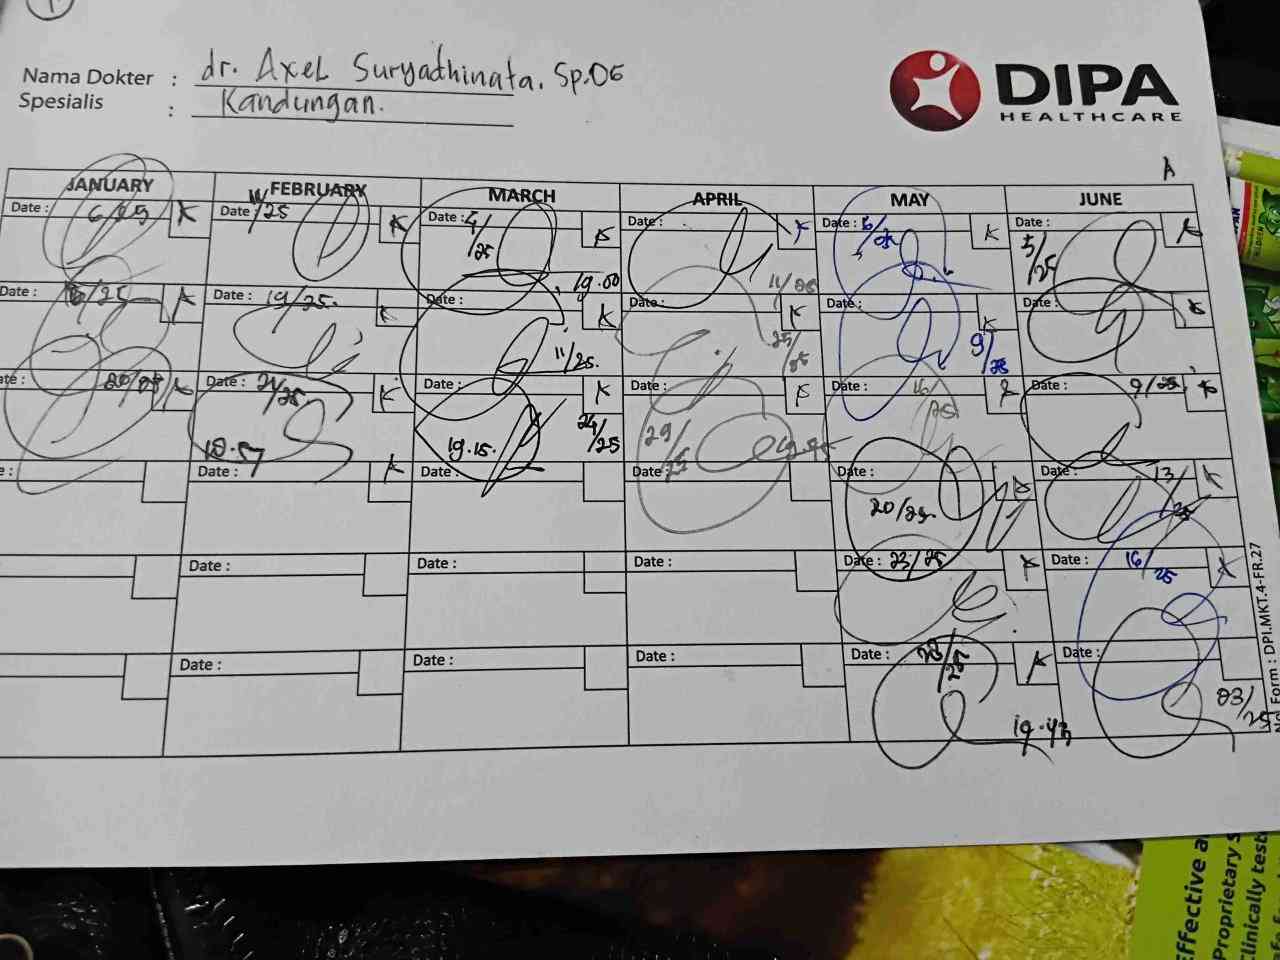 1
Nama Dokter : dr. Axel Suryadhinata. Sp.OG
Spesialis : Kandungan.
DIPA
HEALTHCARE
A
JANUARY FEBRUARY MARCH APRIL MAY JUNE
Date : 6/25 K Date : 11/25 K Date : 4/25 K Date : K Date : K Date : 5/25 K
19.00 11/25
Date : /25 K Date : 19/25. K Date : K Date : K Date : K Date : K
11/25. 25/25 9/25
Date : 20/25 K Date : 21/25 K Date : K Date : K Date : 16/25 K Date : 9/25 K
18.57 19.15. 24/25 29/25
Date : Date : K Date : Date : Date : K Date : 13/25 K
20/25.
Date : Date : Date : Date : 23/25 K Date : 16/25 K
Date : Date : Date : Date : 28/25 K Date :
19.43 03/25
No. Form : DPI.MKT.4-FR.27
Effective a
Proprietary
Clinically test